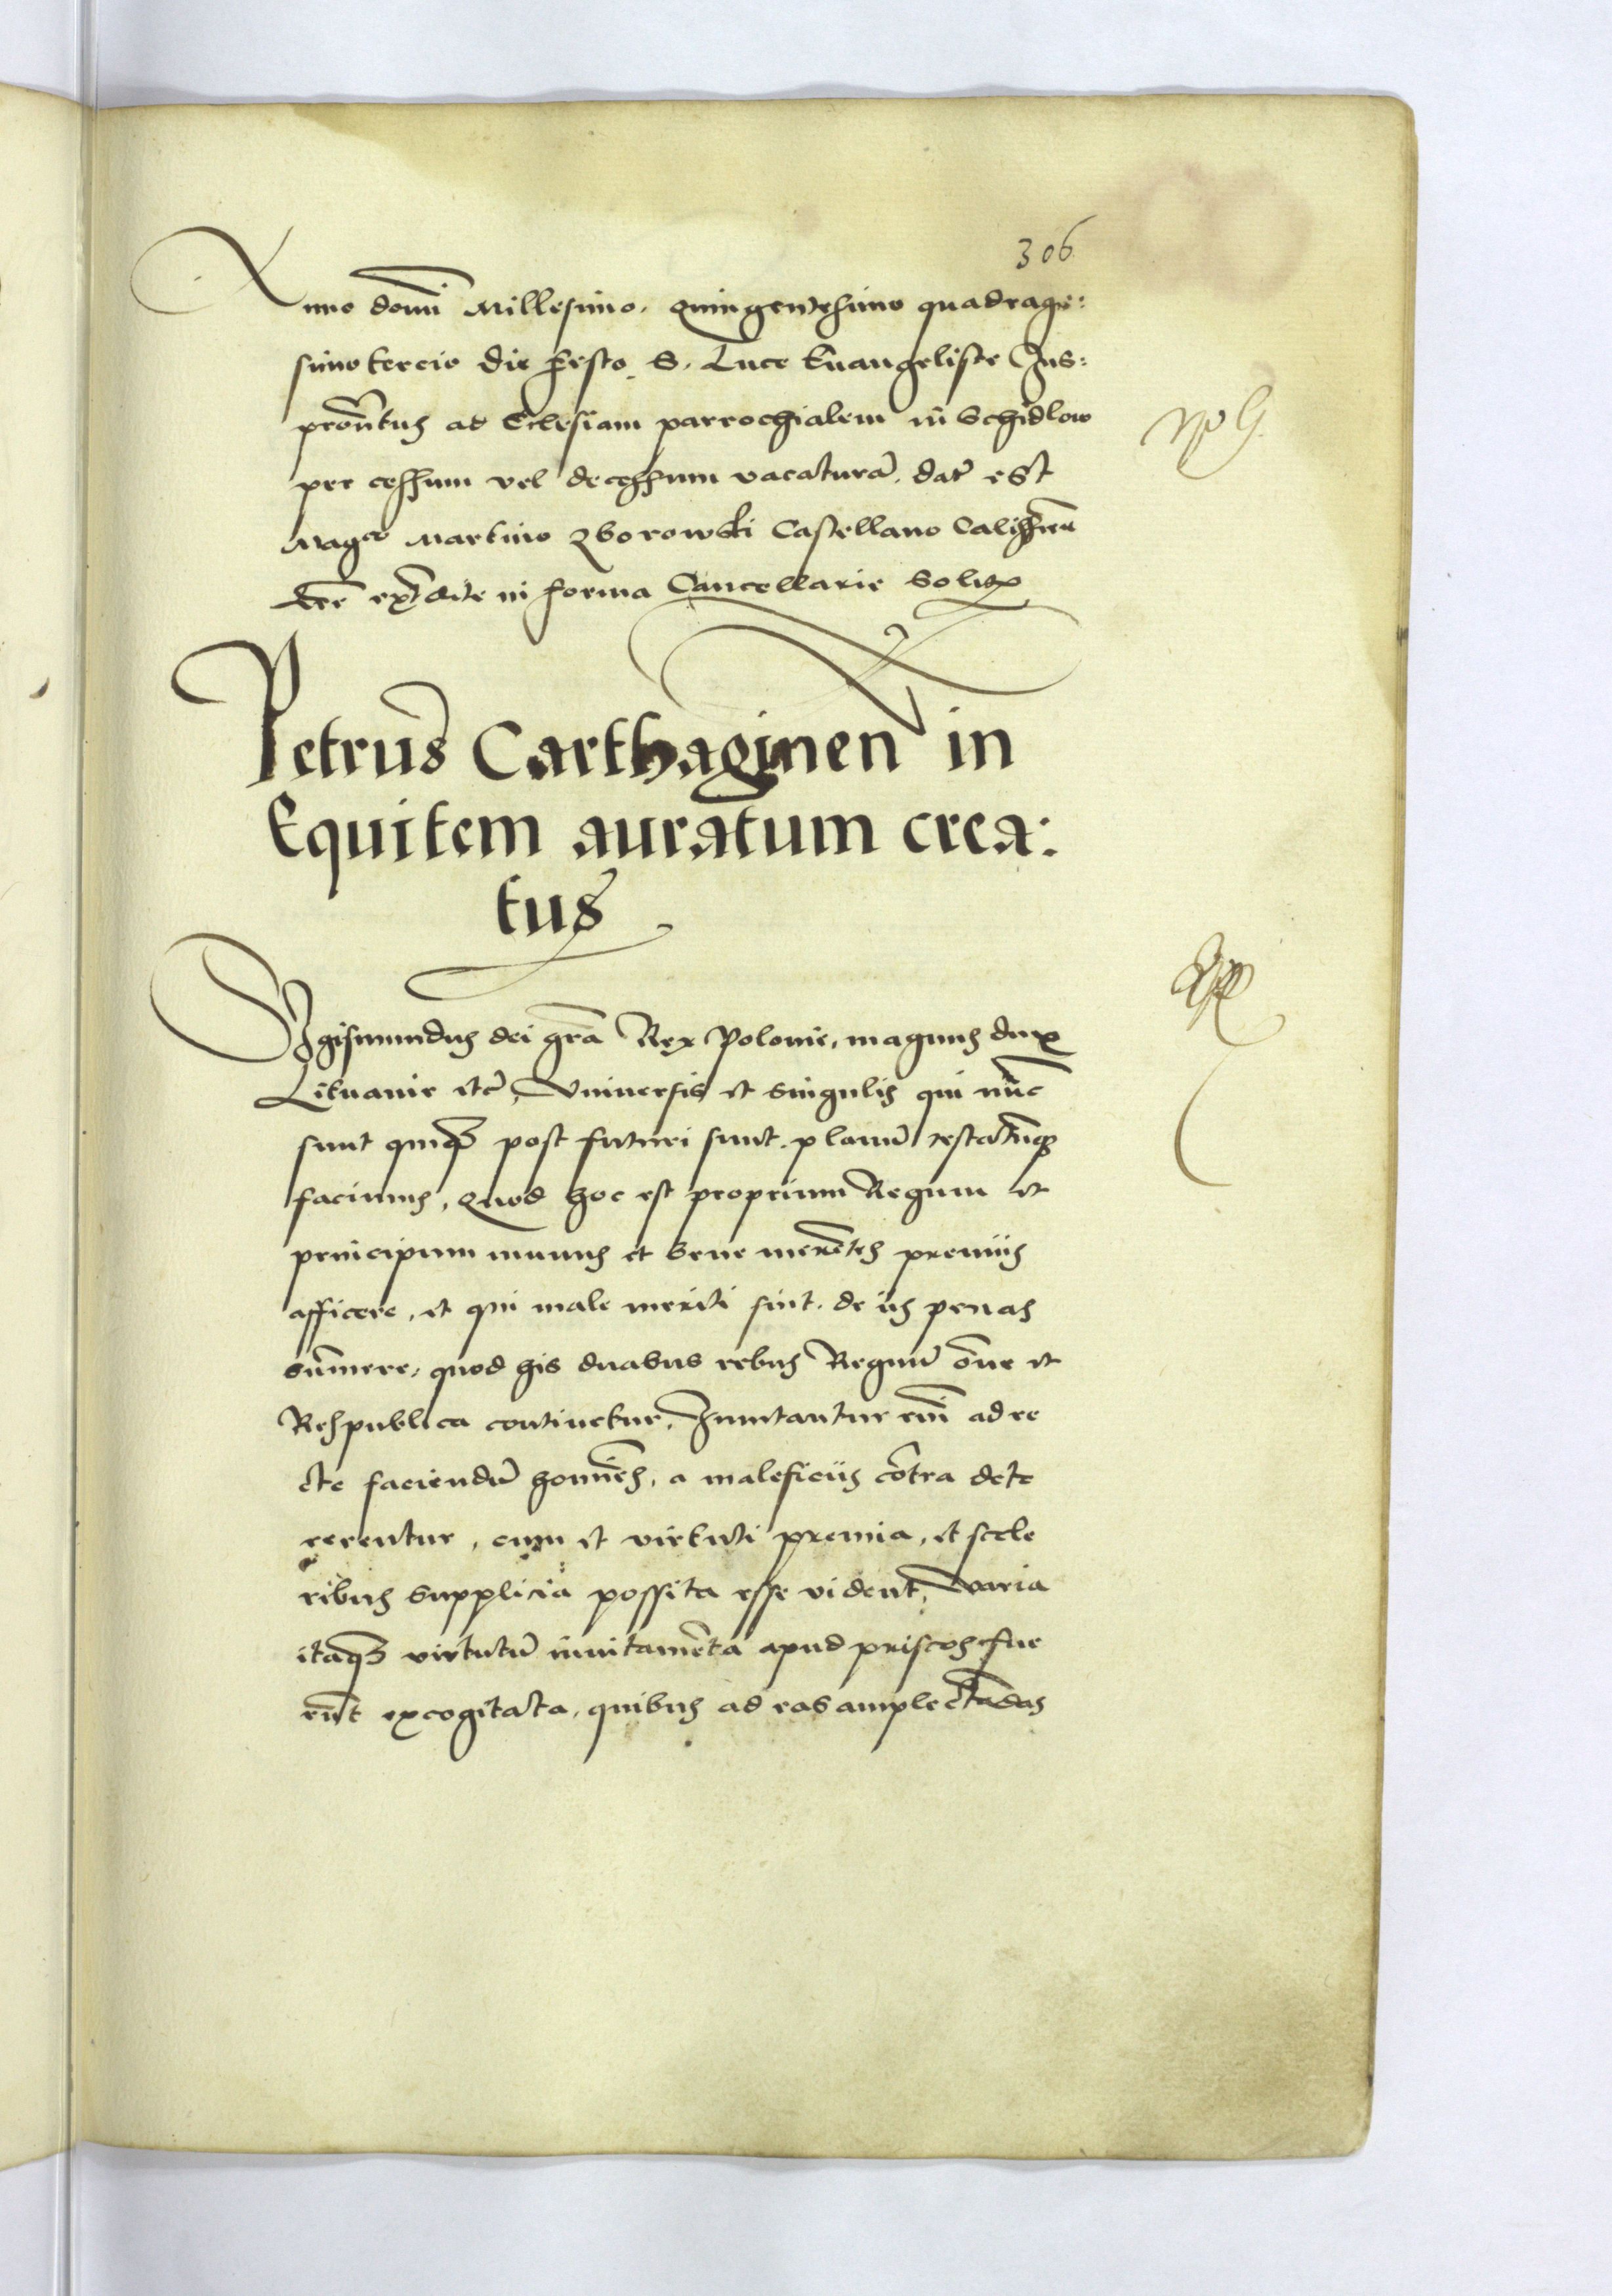 306
Anno domĩ Millesimo. Quingentesimo quadrage:
simo tercio die festo S. Luce Euangeliste Jus:
pñtus ad Eclesiam parrochialem in Schidlow
per cessum vel decessum vacaturã. datũ est
Magco Martino Zborowski Castellano Calissieñ
in forma Cancellarie Solita
Petrus Carthaginen in
Equitem auratum crea:
tus
Sigismundus dei grã Rex Polonie, magnus dux
Lituanie etc̃, Vniuersis et singulis qui nũc
sunt quiq3 post futuri sunt. planũ testatũq3
facimus, Quod hoc est proprium Regum et
principum munus et bene merẽtes premiis
afficere, et qui male meriti sint. de iis penas
sũmere, quod his duabus rebus Regnũ õne et
Respublica continetur, Inuitantur eñi ad re
cte faciendũ homĩes, a maleficiis cõtra dete
rerentur, cum et virtuti premia, et scele
ribus supplicia possita esse vident, Varia
itaq3 virtutũ inuitamẽta apud priscos fue
rũt excogitata, quibus ad eas amplectẽdas